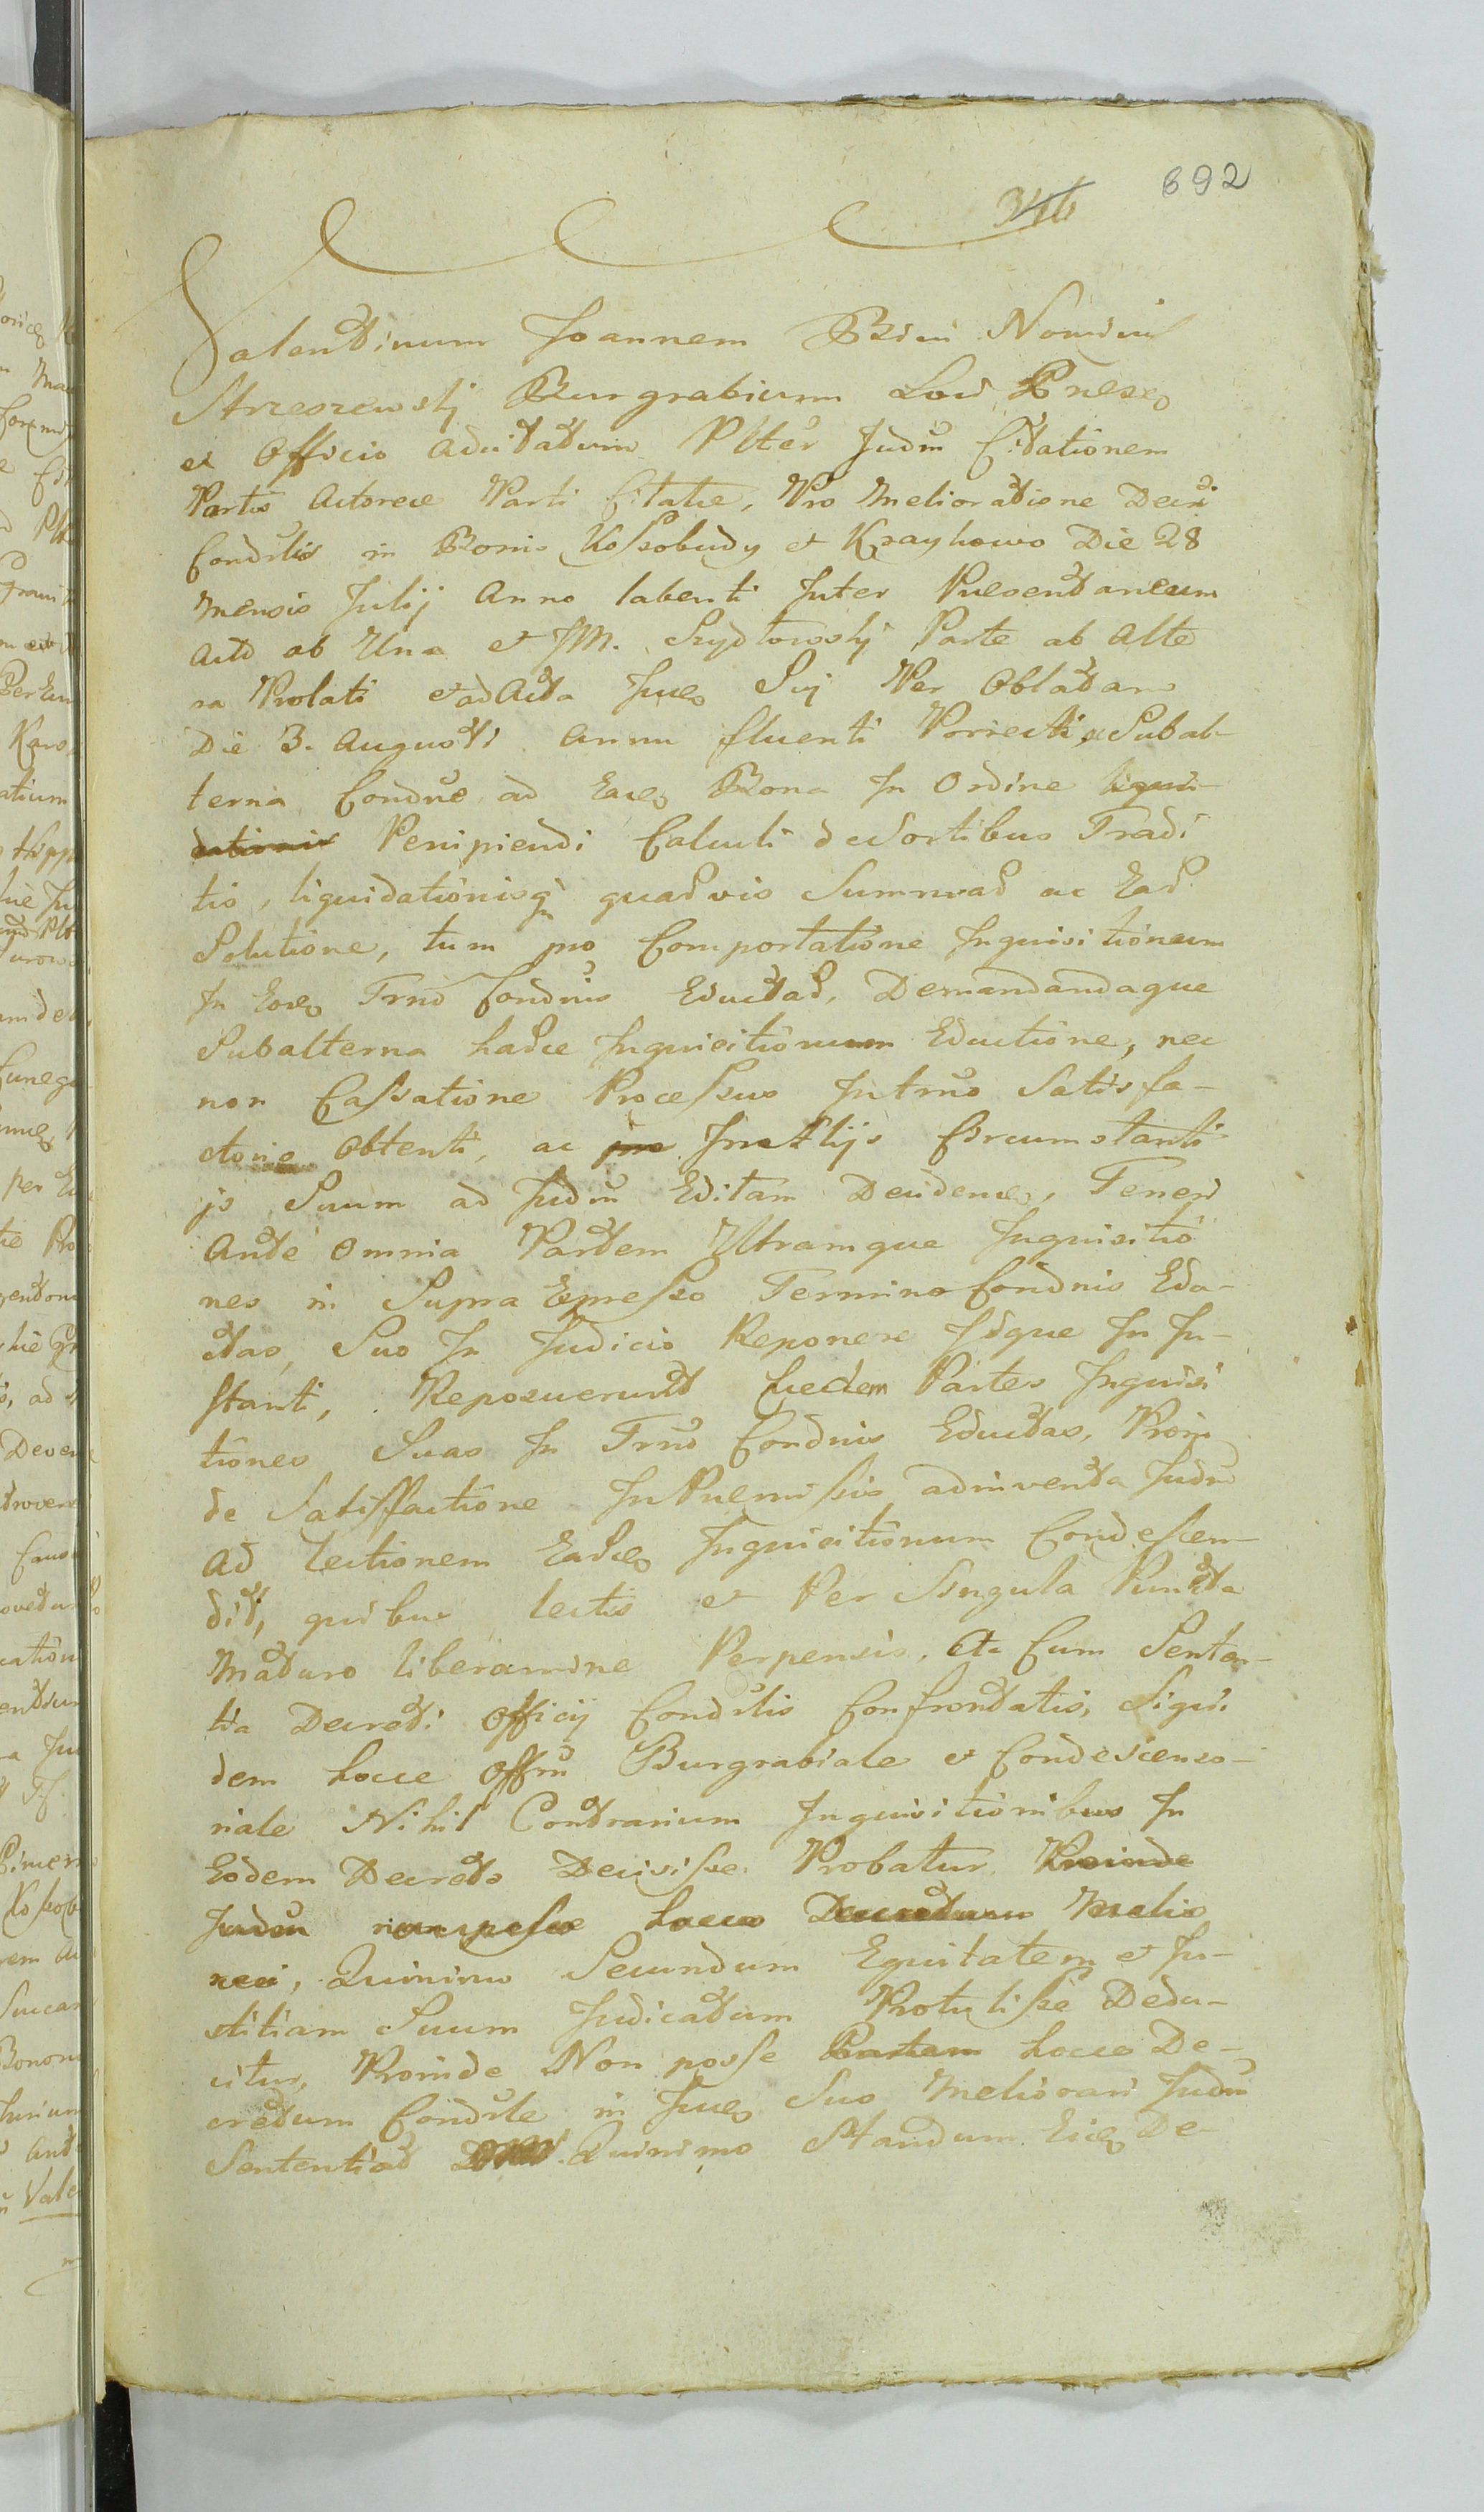 692
346
Valentinum Joannem Bini Nominis
Strzeszewskj Burgrabium Loci Pnese
ex Officio aditatum Plter Judm Citationem
Partis Actoreae Parti Citatae, Pro Melioratione Decri
Condstlis in Bonis Kossobudy et Kraykowo Die 28
Mensis Julij Anno labenti Inter Puesentaneum
Actò ab Una et JM. Szydłowskj Parte ab Alte
ra Prolati et ad Acta Sui Per Oblatam
Die 3. Augusti Anni fluenti Porrecti, Subal-
terna Condne ad Bona In Ordine liqui-
dationis Penipiendi Calculi de Sortibus Tradi
tis, liquidationisq quadvis Summad ac Ead
Solutione, tum pro Comportatione Inquisitioneum
In Trno Condnis Eductad, Demandandaque
Subalterna hadce Inquisitionum Eductione, nec
non Cassatione Processus Intrno Satisfa-
ctorie Obtenti, ac pro Inattijs Circumstanti
js Suum ad Judm Editam Deudene, Teneri
Ante omnia Partem Utramque Inquisitio
nes in Supra Expresso Termino Condnis Edu-
ctas, Suo In Judicio Reponere Idque In In-
stanti, Reposuerunt Eaedem Partes Inquisi
tiones Suas In Trno Condnis Eductas, Proin
de Satisfactione In Puemissis adinventa Judm
Ad lectionem Inquisitionum Condescen-
dit, quibus lectis et Per Singula Puncta
Maturo liberamine Perpensis, Ac Cum Senten-
tia Decreti Officij Condstlis Confrontatis, Siqui
dem hocce Offm Burgrabiale et Condescenso-
riale Nihil Contrarium Inquisitionibus In
Eodem Decreto Decisisse Probatur. Proinde
Judm non posse hocce Decretum Melio
rari, Quinimo Secundum Equitatem et Ju-
stitiam Suum Judicatum Protulisse Dedu-
citur, Proinde Non posse Partem hocce De-
cretum Condstle in Suo Meliorari Judm
Sententiat Quinimo Standum De-